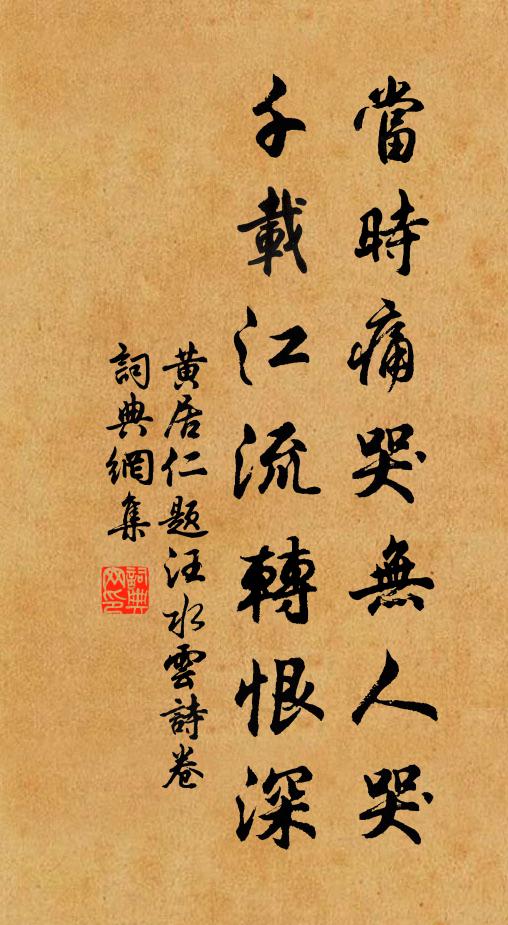 當時痛哭無人哭
千載江流轉恨深
黄居仁题汪水雲詩卷
詞典網集
詞典
网印